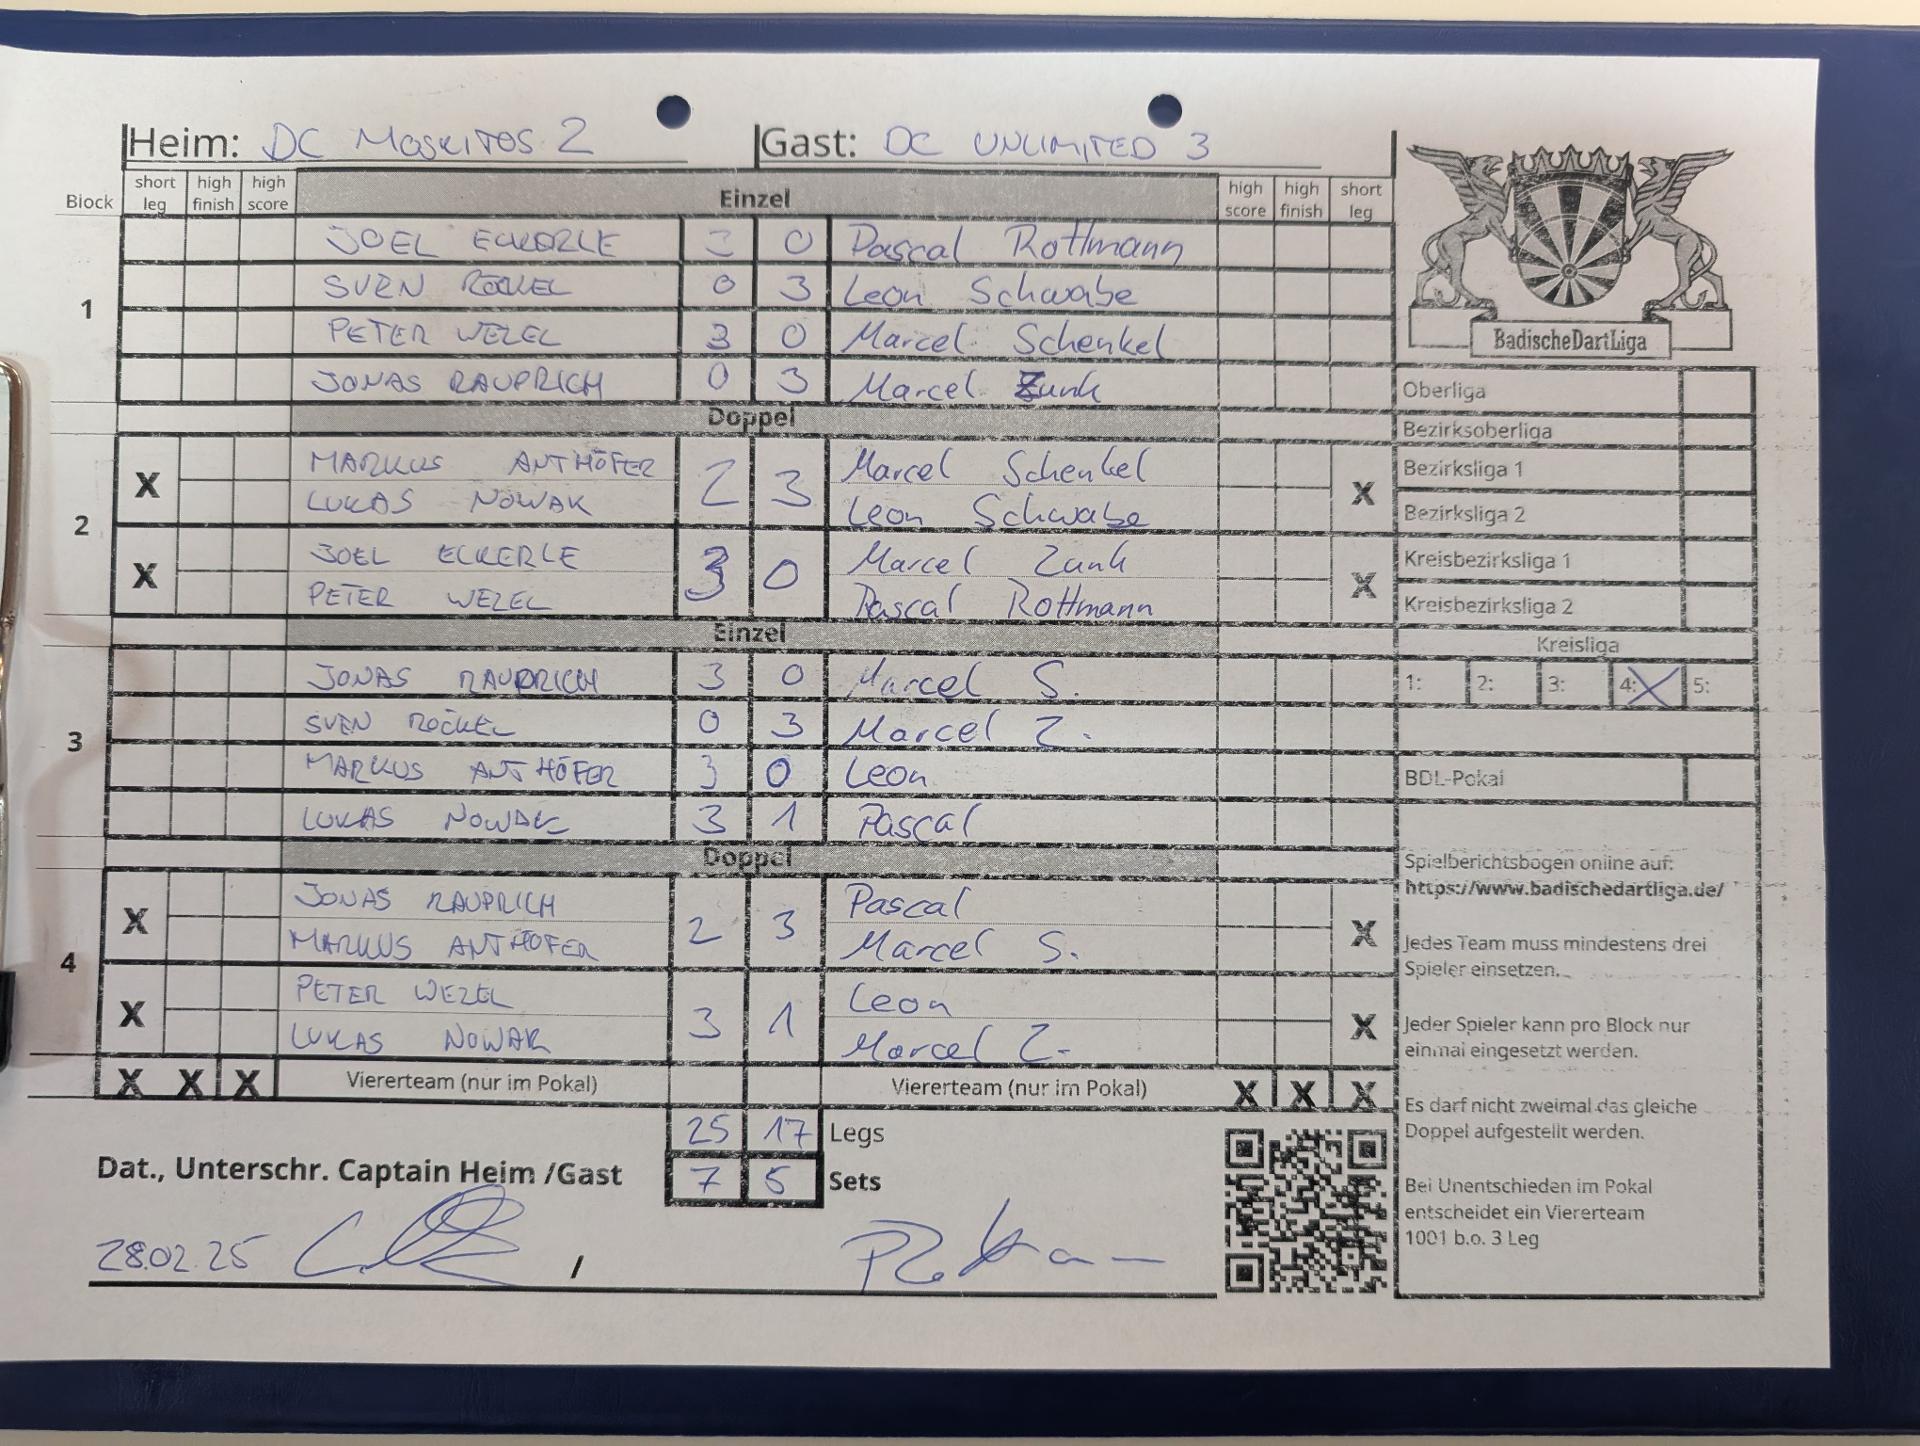 Heim: DC MOSKITOS 2 Gast: DC UNLIMITED 3
Block short leg high finish high score Einzel high score high finish short leg
BadischeDartLiga
1
JOEL ECKERLE 3 0 Pascal Rottmann
SVEN RÖCKEL 0 3 Leon Schwabe
PETER WEZEL 3 0 Marcel Schenkel
JONAS RAUPRICH 0 3 Marcel Zunk
Doppel
2
X MARKUS ANTHÖFER 2 3 Marcel Schenkel X
LUKAS NOWAK Leon Schwabe
X JOEL ECKERLE 3 0 Marcel Zunk X
PETER WEZEL Pascal Rottmann
Einzel
3
JONAS RAUPRICH 3 0 Marcel S.
SVEN RÖCKEL 0 3 Marcel Z.
MARKUS ANTHÖFER 3 0 Leon
LUKAS NOWAK 3 1 Pascal
Doppel
4
X JONAS RAUPRICH 2 3 Pascal X
MARKUS ANTHÖFER Marcel S.
X PETER WEZEL 3 1 Leon X
LUKAS NOWAK Marcel Z.
X X X Viererteam (nur im Pokal) Viererteam (nur im Pokal) X X X
25 17 Legs
7 5 Sets
Dat., Unterschr. Captain Heim /Gast
28.02.25 /
Oberliga
Bezirksoberliga
Bezirksliga 1
Bezirksliga 2
Kreisbezirksliga 1
Kreisbezirksliga 2
Kreisliga
1: 2: 3: 4: X 5:
BDL-Pokal
Spielberichtsbogen online auf:
https://www.badischedartliga.de/
Jedes Team muss mindestens drei
Spieler einsetzen.
Jeder Spieler kann pro Block nur
einmal eingesetzt werden.
Es darf nicht zweimal das gleiche
Doppel aufgestellt werden.
Bei Unentschieden im Pokal
entscheidet ein Viererteam
1001 b.o. 3 Leg